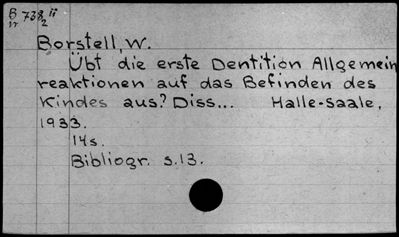 B 738 ii
Borstell, W.
Übt die erste Dentition Allgemein
reaktionen auf das Befinden des
Kindes aus? Diss... Halle-Saale,
1933.
14s.
Bibliogr. s.13.